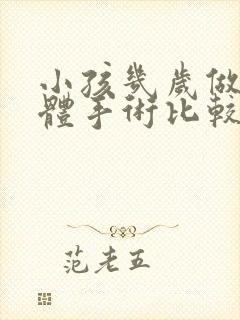 小孩幾歲做
體手術比較
范老五